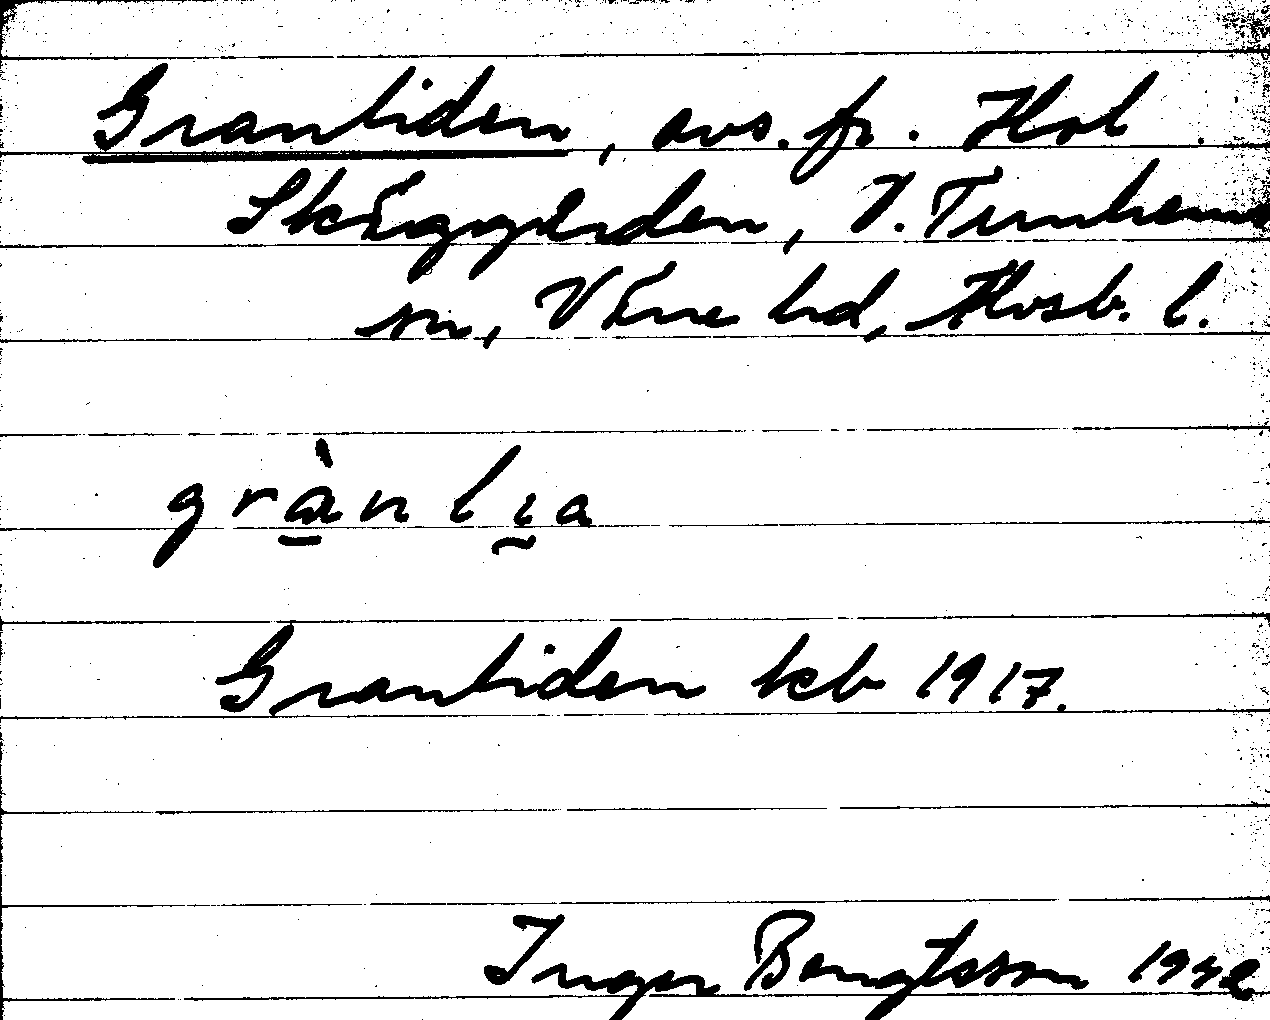 Granliden, avs. fr. Hol
Skäggården, V. Tunhems
sn, Väne hd, Älvsb. l.
grànlia
Granliden kb 1917.
Inger Bengtsson 1942